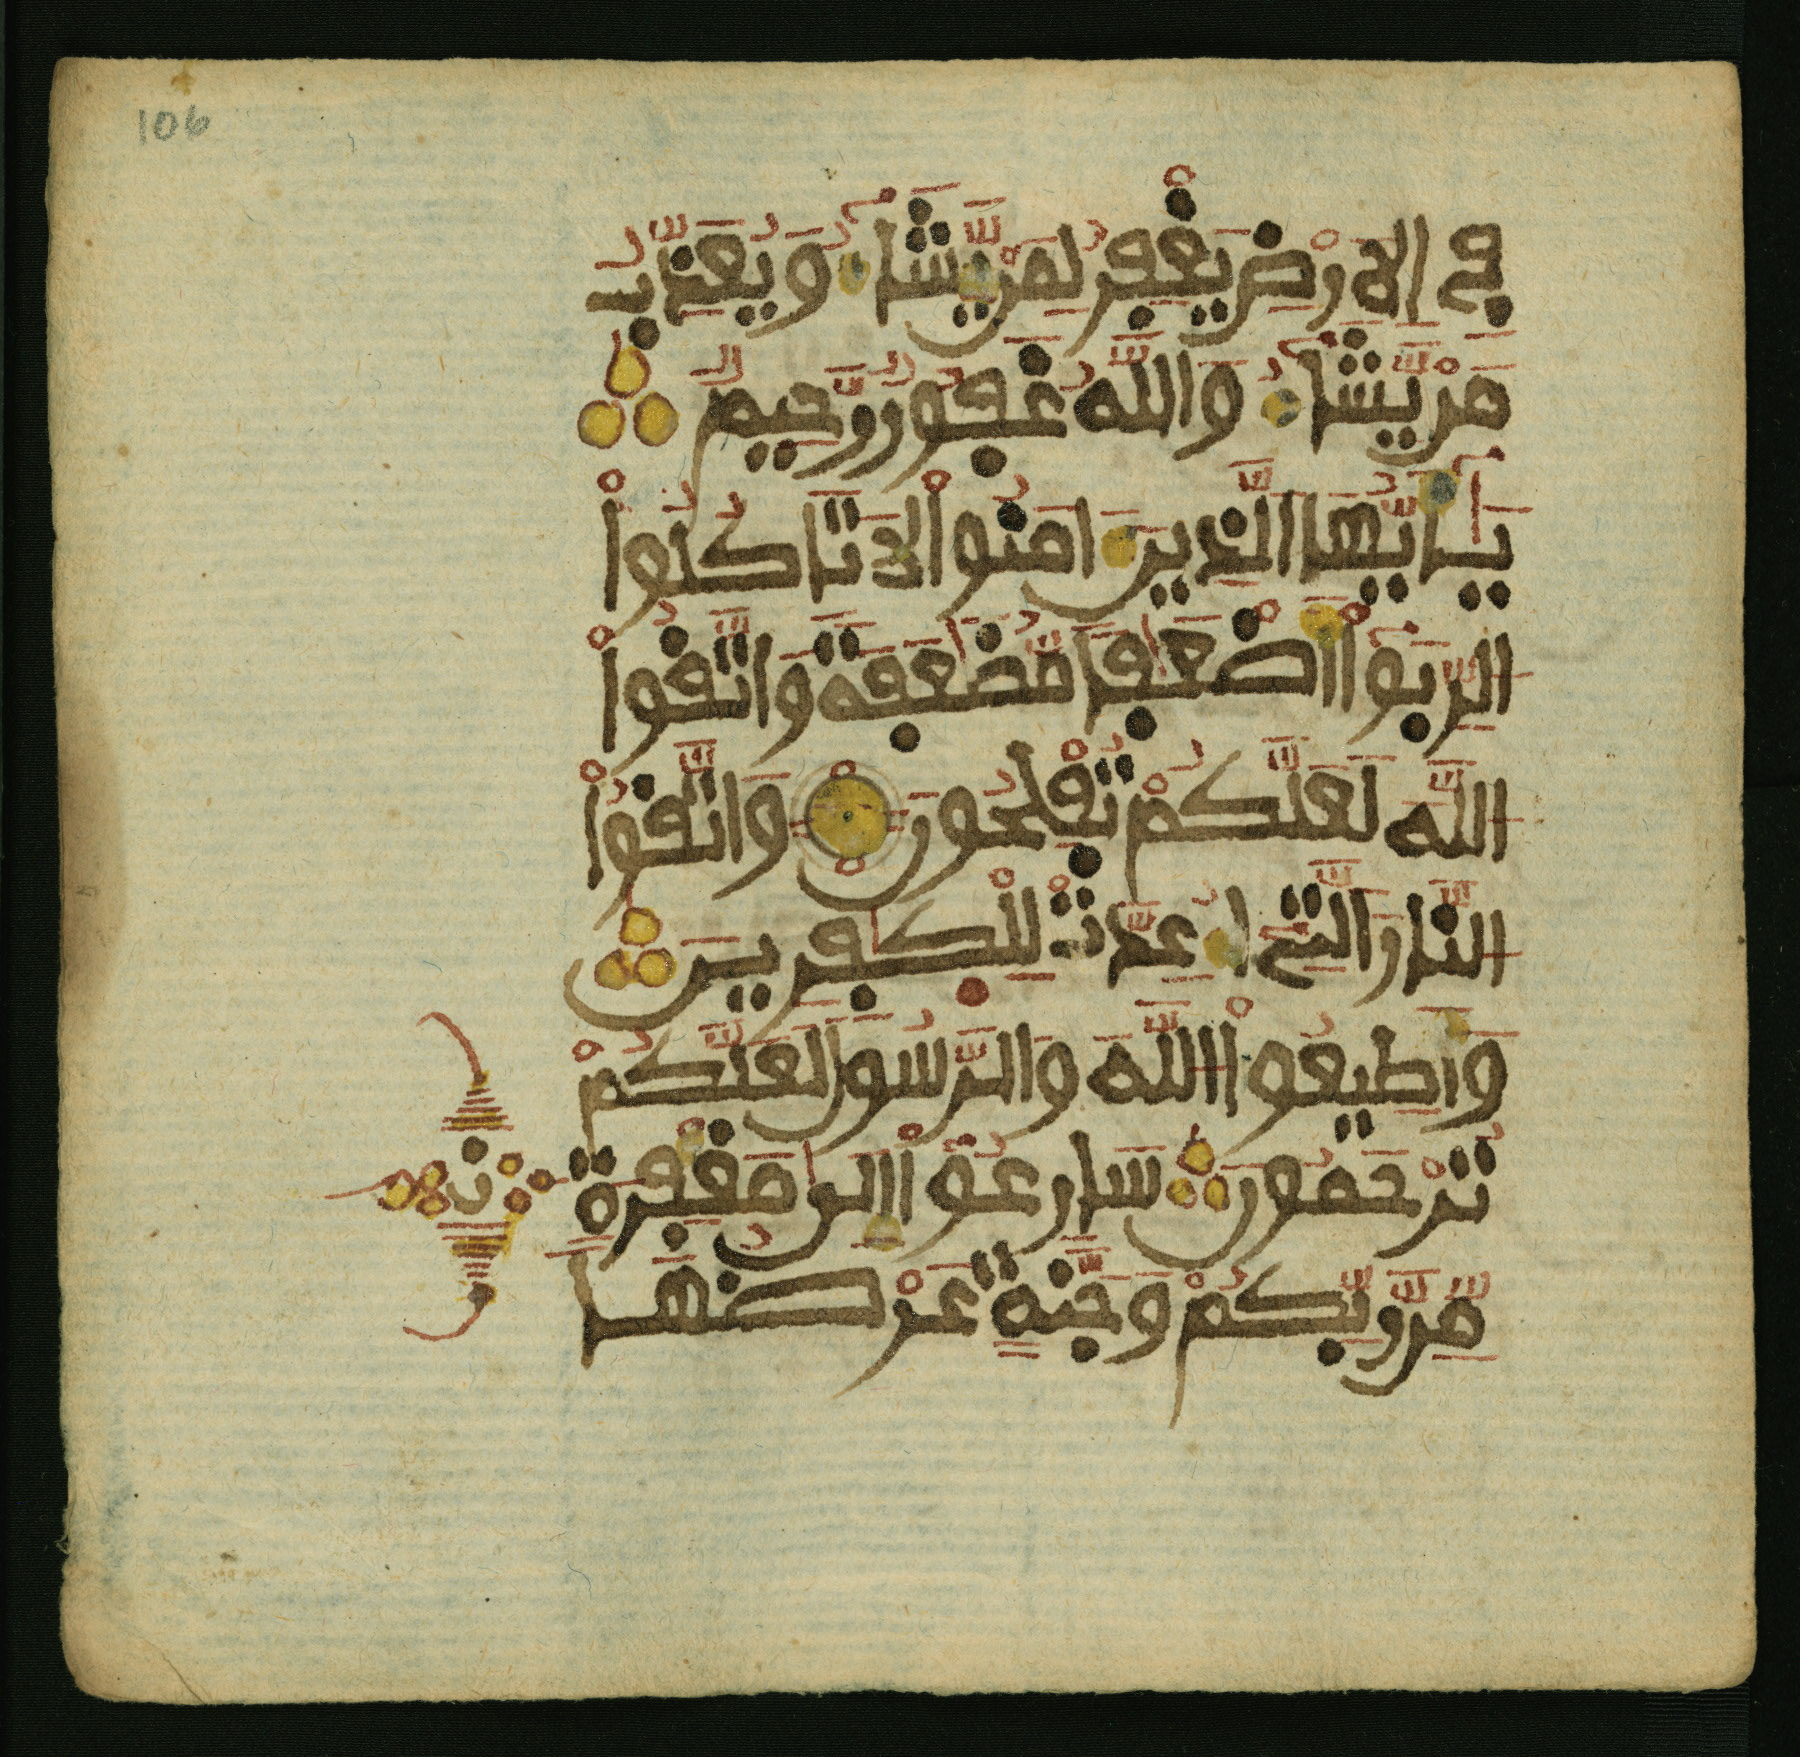 106
في الارض يغفر لمن يشاء ويعذب
من يشاء والله غفور رحيم
يايها الذين امنوا لا تاكلوا
الربوا اضعفا مضعفة واتقوا
الله لعلكم تفلحون واتقوا
النار التي اعدت للكفرين
واطيعوا الله والرسول لعلكم
ترحمون سارعوا الى مغفرة
من ربكم وجنة عرضها